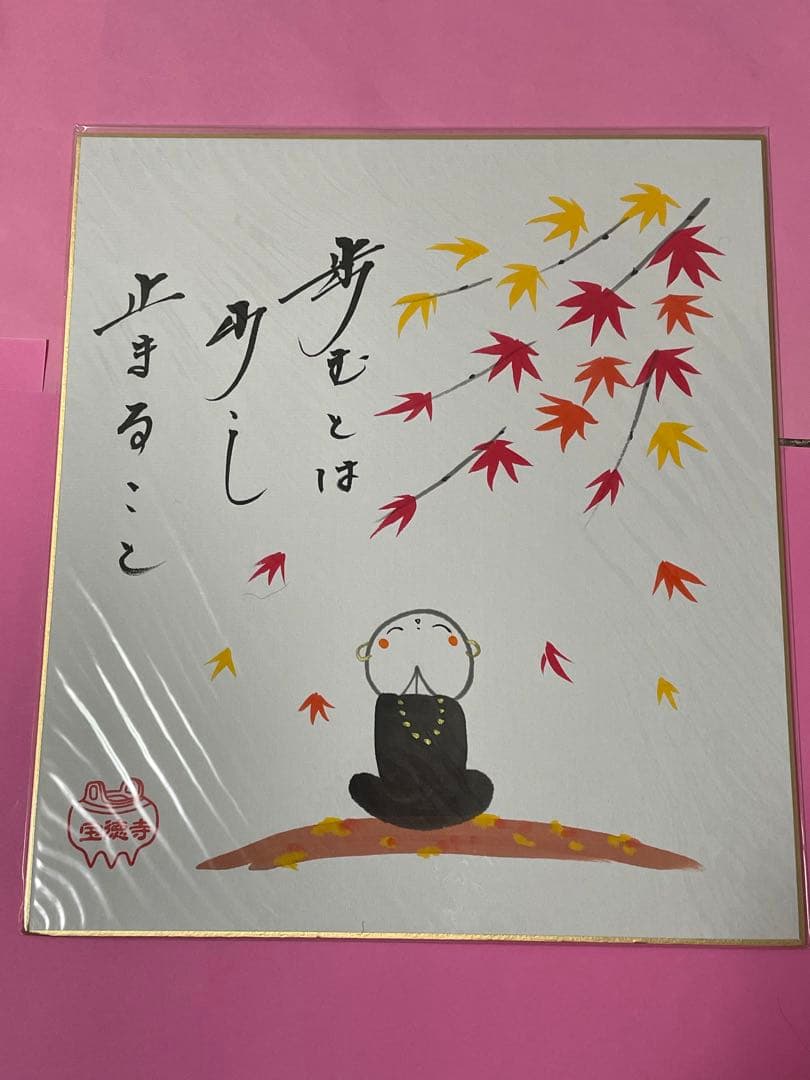 歩むとは
少し
止まること
宝徳寺